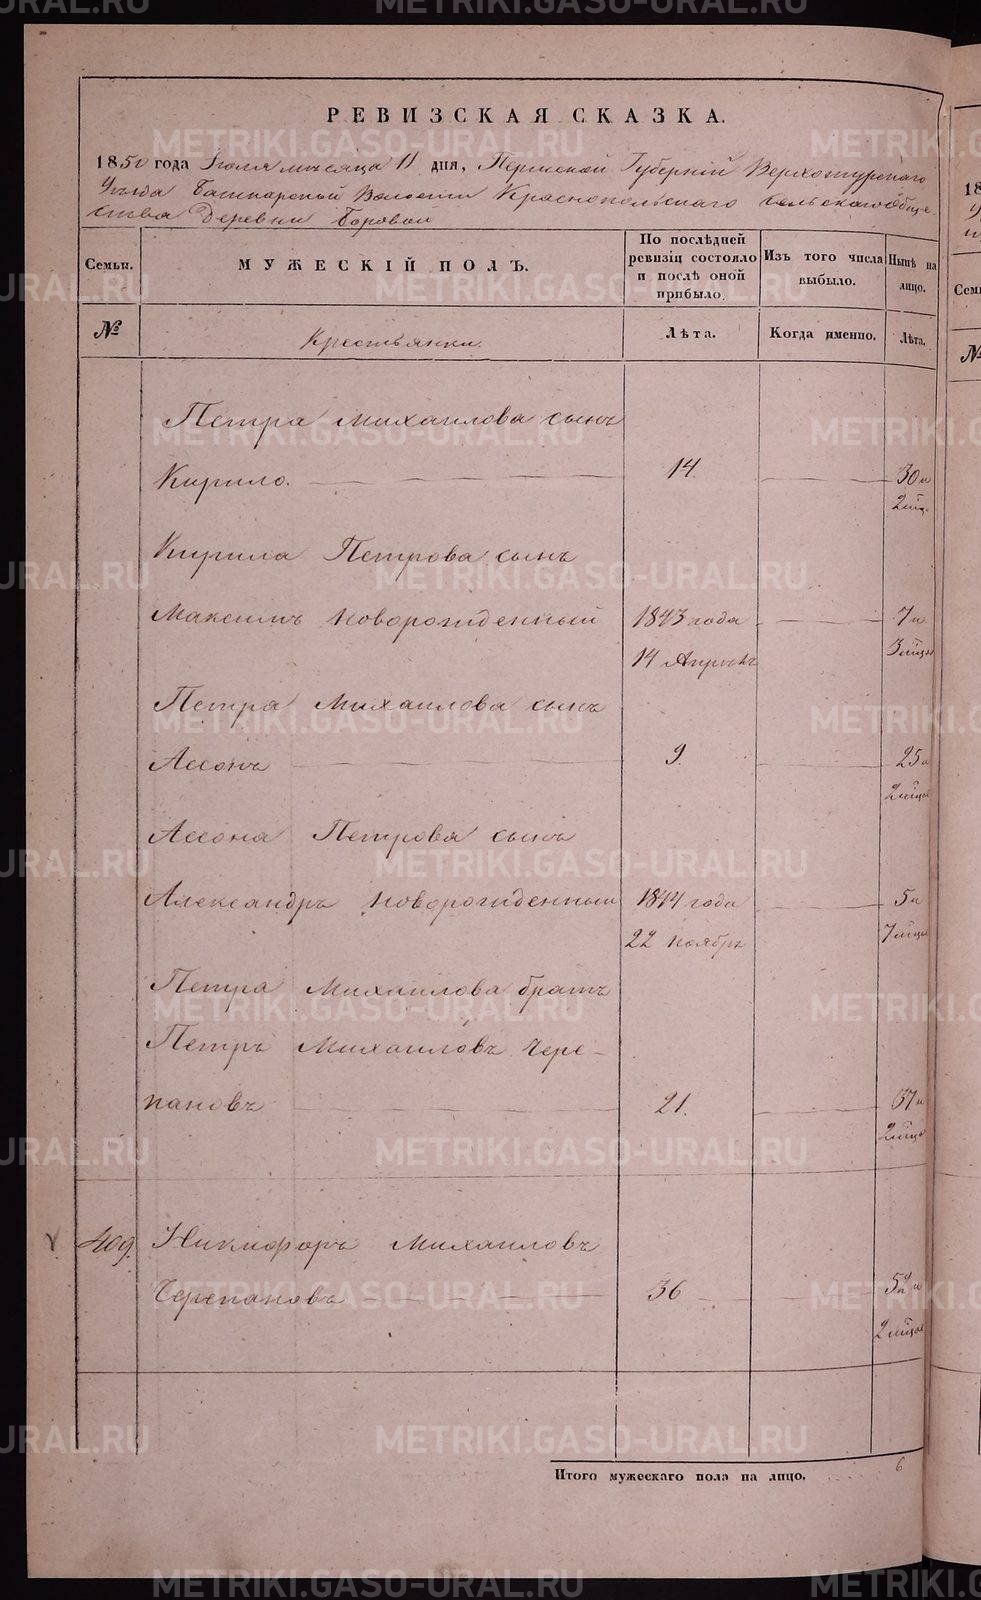 РЕВИЗСКАЯ СКАЗКА.
1850 года Іюля мѣсяца 11 дня, Пермской Губерніи Верхотурскаго
Уѣзда Башкарской Волости Краснопольскаго сельскаго обще-
ства Деревни Боровой
Семьи.
МУЖЕСКІЙ ПОЛЪ.
По послѣдней ревизіи состояло и послѣ оной прибыло.
Изъ того числа выбыло.
Нынѣ на лицо.
№
Крестьянки.
Лѣта.
Когда именно.
Лѣта.
Петра Михаилова сынъ
Кирило. 14. 30 и
2 мѣц.
Кирила Петрова сынъ
Максимъ новорожденный 1843 года 7 и
14 Апрѣль 3 мѣцы
Петра Михаилова сынъ
Ассонъ 9. 25 и
2 мѣца
Ассона Петрова сынъ
Александръ новорожденный 1844 года 5 и
22 ноябрь 7 мѣцы
Петра Михаилова братъ
Петръ Михаиловъ Чере-
пановъ 21. 37 и
2 мѣца
409. Никифоръ Михаиловъ
Черепановъ 36 52 и
2 мѣца
Итого мужескаго пола на лицо. 6
METRIKI.GASO-URAL.RU